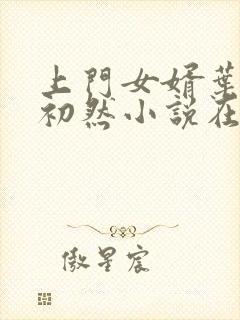 上門女婿葉
初然小說在
傲星宸